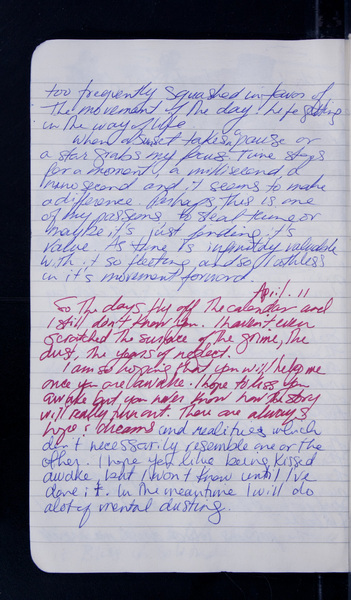 too frequently squashed in favor of
the movement of the day. Life getting
in the way of life
When a sunset takes pause or
a star grabs my focus. Time stops
for a moment, a millisecond, a
nanosecond and it seems to make
a difference. Perhaps this is one
of my passions to steal time or
maybe it's just finding it's
value. As time is infinitely valuable
with it so fleeting and so ruthless
in it's movement forward
April. 11
So the days fly off the calendar and
I still don't know you. I haven't even
scratched the surface of the grime, the
dust, the years of neglect.
I am so hoping that you will help me
once you are awake. I hope to kiss you
awake but you never know how the story
will really turn out. There are always
hope & dreams and realities which
don't necessarily resemble one or the
other. I hope you like being kissed
awake but I won't know until I've
done it. In the meantime I will do
alot of mental dusting.